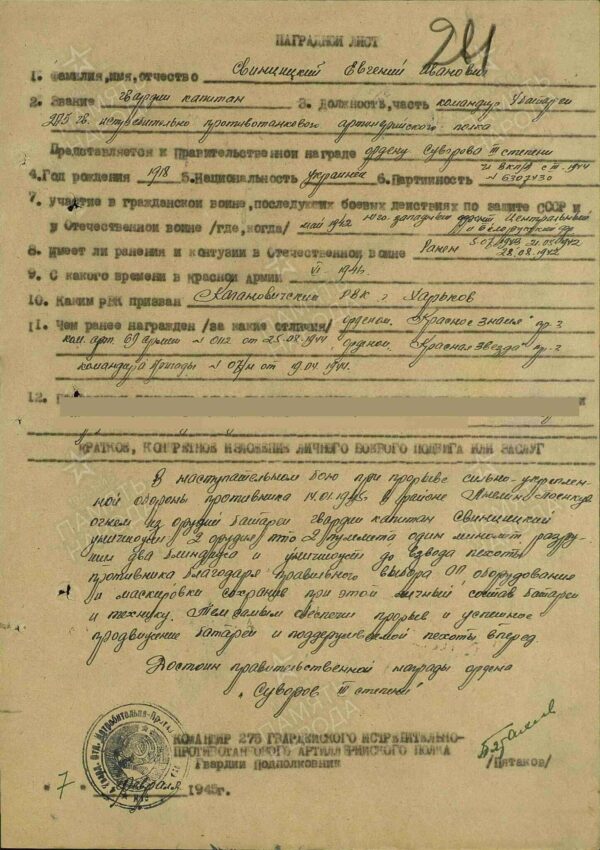 211
НАГРАДНОЙ ЛИСТ
1. Фамилия, имя, отчество Свинцицкий Евгений Иванович
2. Звание гвардии капитан 3. Должность, часть командир батареи
275 гв. истребительно противотанкового артиллерийского полка
Представляется к Правительственной награде ордену Суворова III степени
4. Год рождения 1918 5. Национальность украинец 6. Партийность чл ВКП/б с 1944
№ 6307430
7. Участие в гражданской войне, последующих боевых действиях по защите СССР и
в Отечественной войне /где, когда/ май 1942 юго западный фронт Центральный
и Белорусский фр.
8. Имеет ли ранения и контузии в Отечественной войне Ранен
28.08.1942
9. С какого времени в Красной Армии
10. Каким РВК призван Кагановичским РВК г Харьков
11. Чем ранее награжден /за какие отличия/ орденом "Красное знамя" пр-з
ком. арт. 69 армии от 25.08.1944 орденом "Красная звезда" пр-з
командира бригады от 19.04.1944.
12.
КРАТКОЕ, КОНКРЕТНОЕ ИЗЛОЖЕНИЕ ЛИЧНОГО БОЕВОГО ПОДВИГА ИЛИ ЗАСЛУГ
В наступательном бою при прорыве сильно-укреплен-
ной обороны противника 14.01.1945 в районе
огнем из орудий батареи гвардии капитан Свинцицкий
уничтожил 2 орудия ПТО 2 пулемета один миномет, разру-
шил два блиндажа и уничтожил до взвода пехоты
противника благодаря правильного выбора ОП, оборудования
и маскировки сохранив при этом личный состав батареи
и технику. Тем самым обеспечил прорыв и успешное
продвижение батареи и поддерживаемой пехоты вперед.
Достоин правительственной награды ордена
"Суворов III степени"
КОМАНДИР 275 ГВАРДЕЙСКОГО ИСТРЕБИТЕЛЬНО-
ПРОТИВОТАНКОВОГО АРТИЛЛЕРИЙСКОГО ПОЛКА
Гвардии Подполковник /Пятаков/
"7" февраля 1945г.